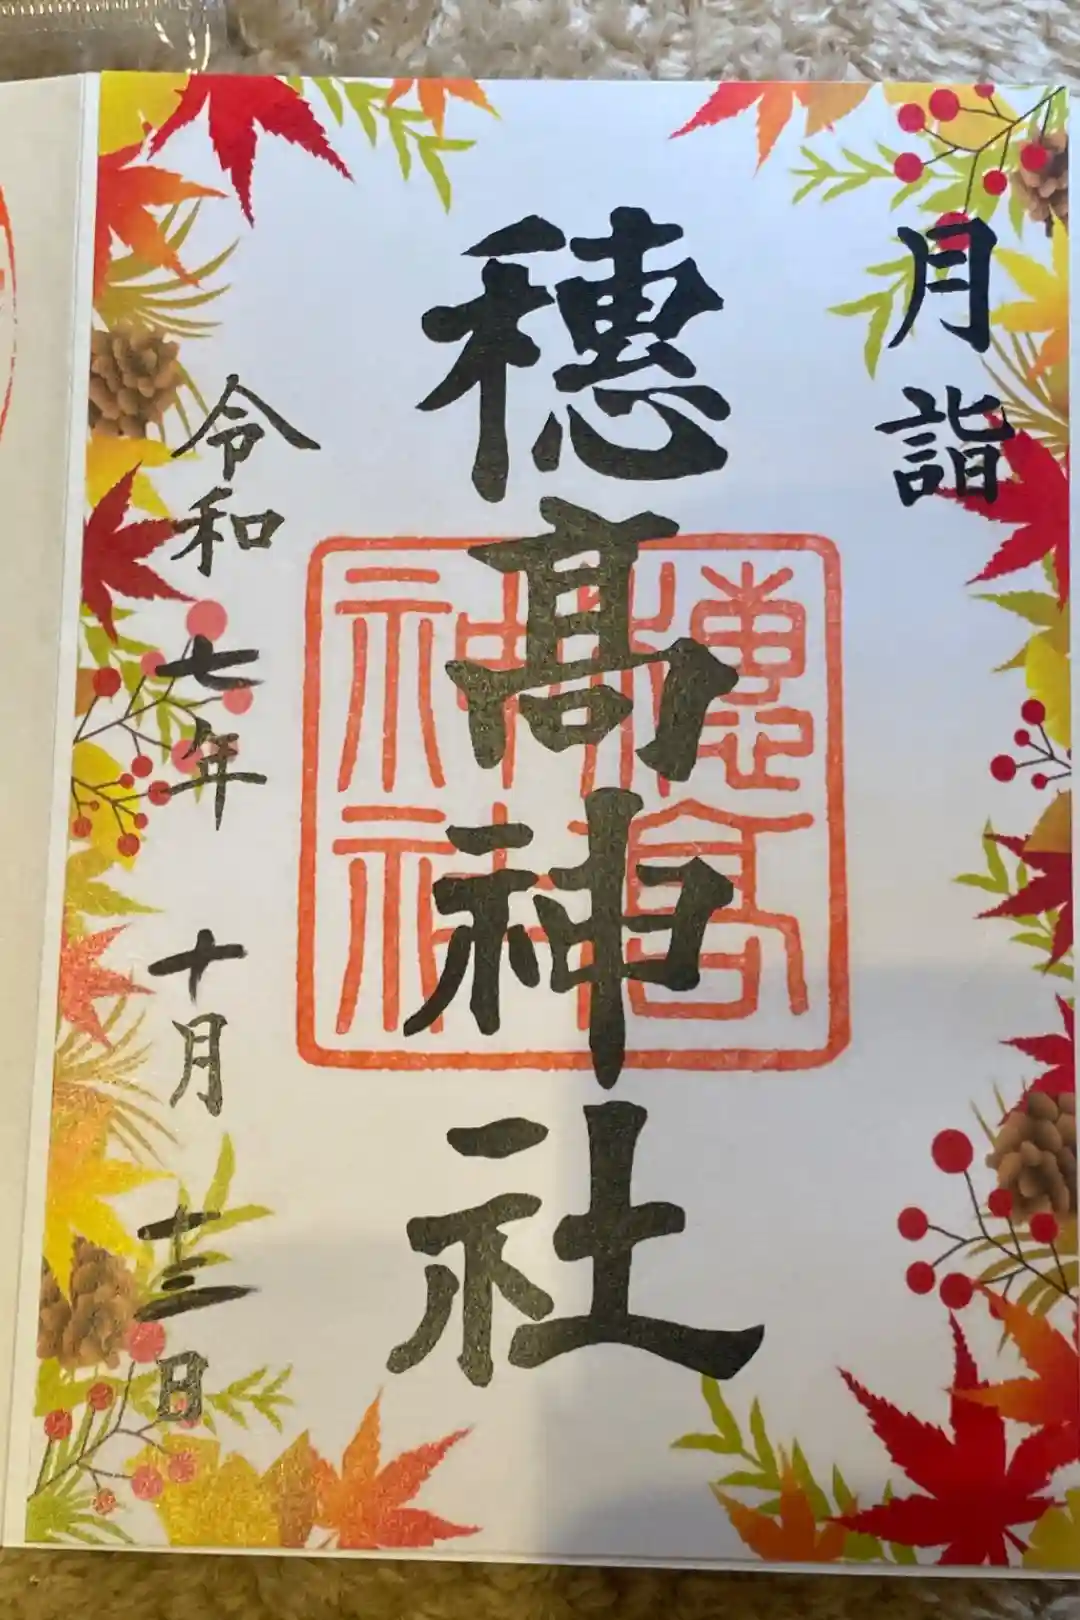 月詣
穂髙神社
穂高
神社
令和七年 十月 十三日